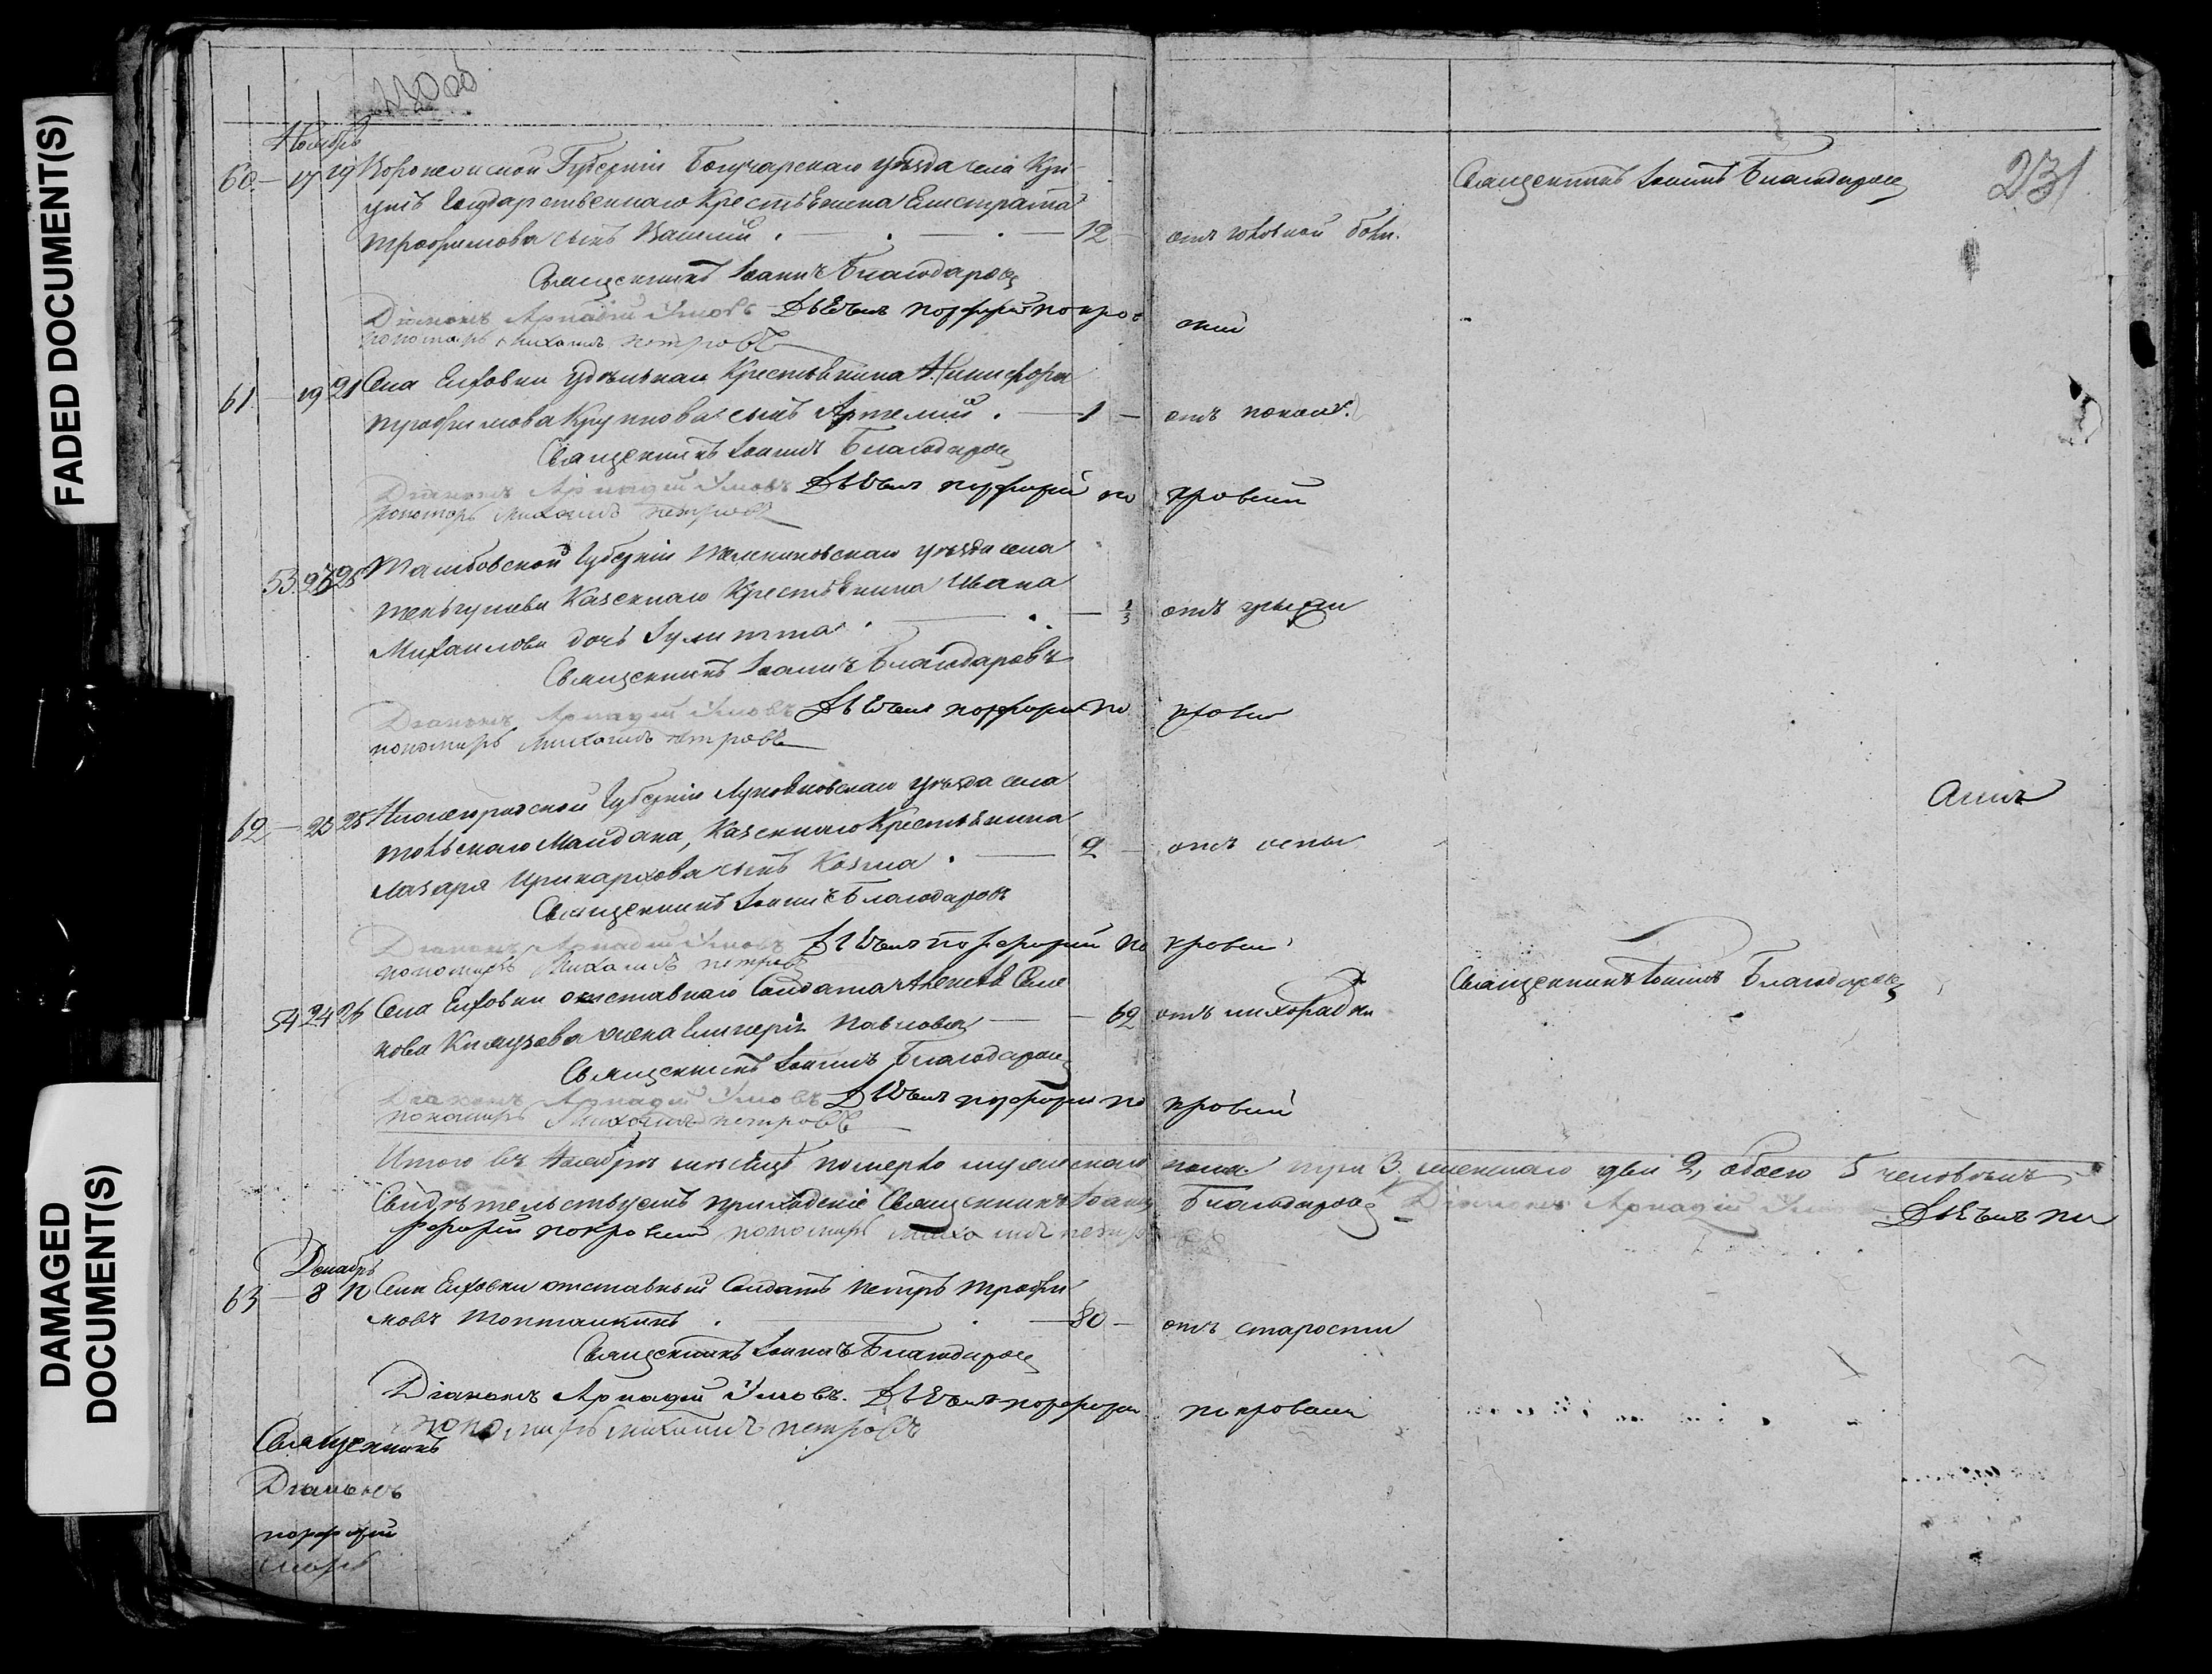 FADED DOCUMENT(S)
DAMAGED DOCUMENT(S)
231
Ноябрь
60 — 17 19 Воронежской Губерніи Богучарскаго уѣзда села Кри-
уши Государственнаго Крестьянина Елистрата
Трофимова сынъ Василій . — 12 — отъ головной боли. Священникъ Іоаннъ Благодаровъ
Священникъ Іоаннъ Благодаровъ
Діаконъ Аркадій Умовъ Дьячекъ Порфирій Покров ский
пономарь Михаилъ Петровъ
61 — 19 21 Села Елховки Удѣльнаго Крестьянина Никифора
Трофимова Крупнова сынъ Артемій . — 1 — отъ
Священникъ Іоаннъ Благодаровъ
Діаконъ Аркадій Умовъ Дьячекъ Порфирій По кровский
пономарь Михаилъ Петровъ
53 23 25 Тамбовской Губерніи Темниковскаго уѣзда села
Теньгушева Казеннаго Крестьянина Ивана
Михаилова дочь Іулитта . — 1/3 отъ
Священникъ Іоаннъ Благодаровъ
Діаконъ Аркадій Умовъ Дьячекъ Порфирій По кровский
пономарь Михаилъ Петровъ
62 — 23 25 Нижегородской Губерніи Лукояновскаго уѣзда села
Майдана, Казеннаго Крестьянина
Лазаря сынъ Козма . — 2 — отъ оспы
Священникъ Іоаннъ Благодаровъ
Діаконъ Аркадій Умовъ Дьячекъ Порфирій По кровский
пономарь Михаилъ Петровъ
54 24 26 Села Елховки отставнаго Солдата Алексѣя Семе
нова жена Павлова — 62 отъ лихорадки Священникъ Іоаннъ Благодаровъ
Священникъ Іоаннъ Благодаровъ
Діаконъ Аркадій Умовъ Дьячекъ Порфирій По кровский
пономарь Михаилъ Петровъ
Итого въ Ноябрѣ мѣсяцѣ померло мужескаго пола три 3, женскаго двѣ 2, обоего 5 человѣкъ
Свидѣтельствуемъ приходскіе Священникъ Іоаннъ Благодаровъ Діаконъ Аркадій Умовъ Дьячекъ По
рфирій Покровский пономарь Михаилъ Петровъ
Декабрь
63 — 8 10 Села Елховки отставный Солдатъ Петръ Трофи
мовъ Топталкинъ . — 80 — отъ старости
Священникъ Іоаннъ Благодаровъ
Діаконъ Аркадій Умовъ. Дьячекъ Порфирій Покровский
пономарь Михаилъ Петровъ
Священникъ
Діаконъ
Порфирій